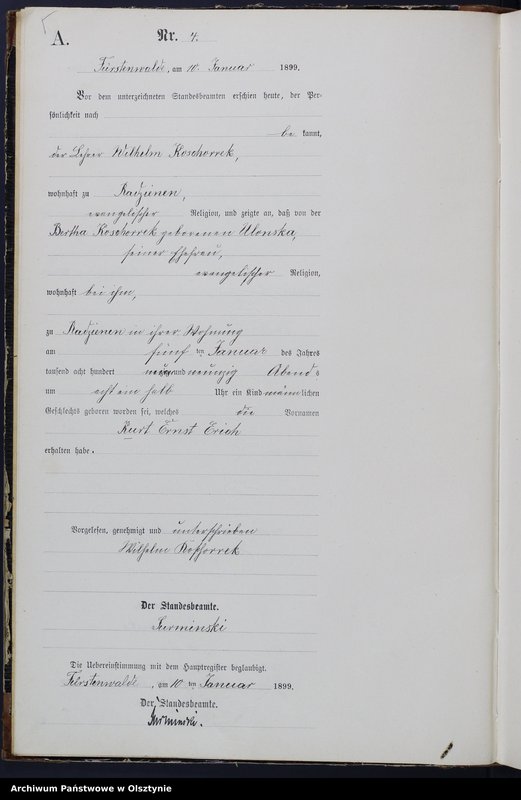 A.
Nr. 4.
Fürstenwalde, am 10. Januar 1899.
Vor dem unterzeichneten Standesbeamten erschien heute, der Per-
sönlichkeit nach
be kannt,
der Lehrer Wilhelm Koschorrek,
wohnhaft zu Radzienen,
evangelischer Religion, und zeigte an, daß von der
Bertha Koschorrek geborenen Ulonska,
seiner Ehefrau,
evangelischer Religion,
wohnhaft bei ihm,
zu Radzienen in ihrer Wohnung
am fünf ten Januar des Jahres
tausend acht hundert neun und neunzig Abend s
um acht ein halb Uhr ein Kind männ lichen
Geschlechts geboren worden sei, welches die Vornamen
Kurt Ernst Erich
erhalten habe.
Vorgelesen, genehmigt und unterschrieben
Wilhelm Koschorrek
Der Standesbeamte.
Surminski
Die Uebereinstimmung mit dem Hauptregister beglaubigt.
Fürstenwalde, am 10 ten Januar 1899.
Der Standesbeamte.
Surminski.
Archiwum Państwowe w Olsztynie